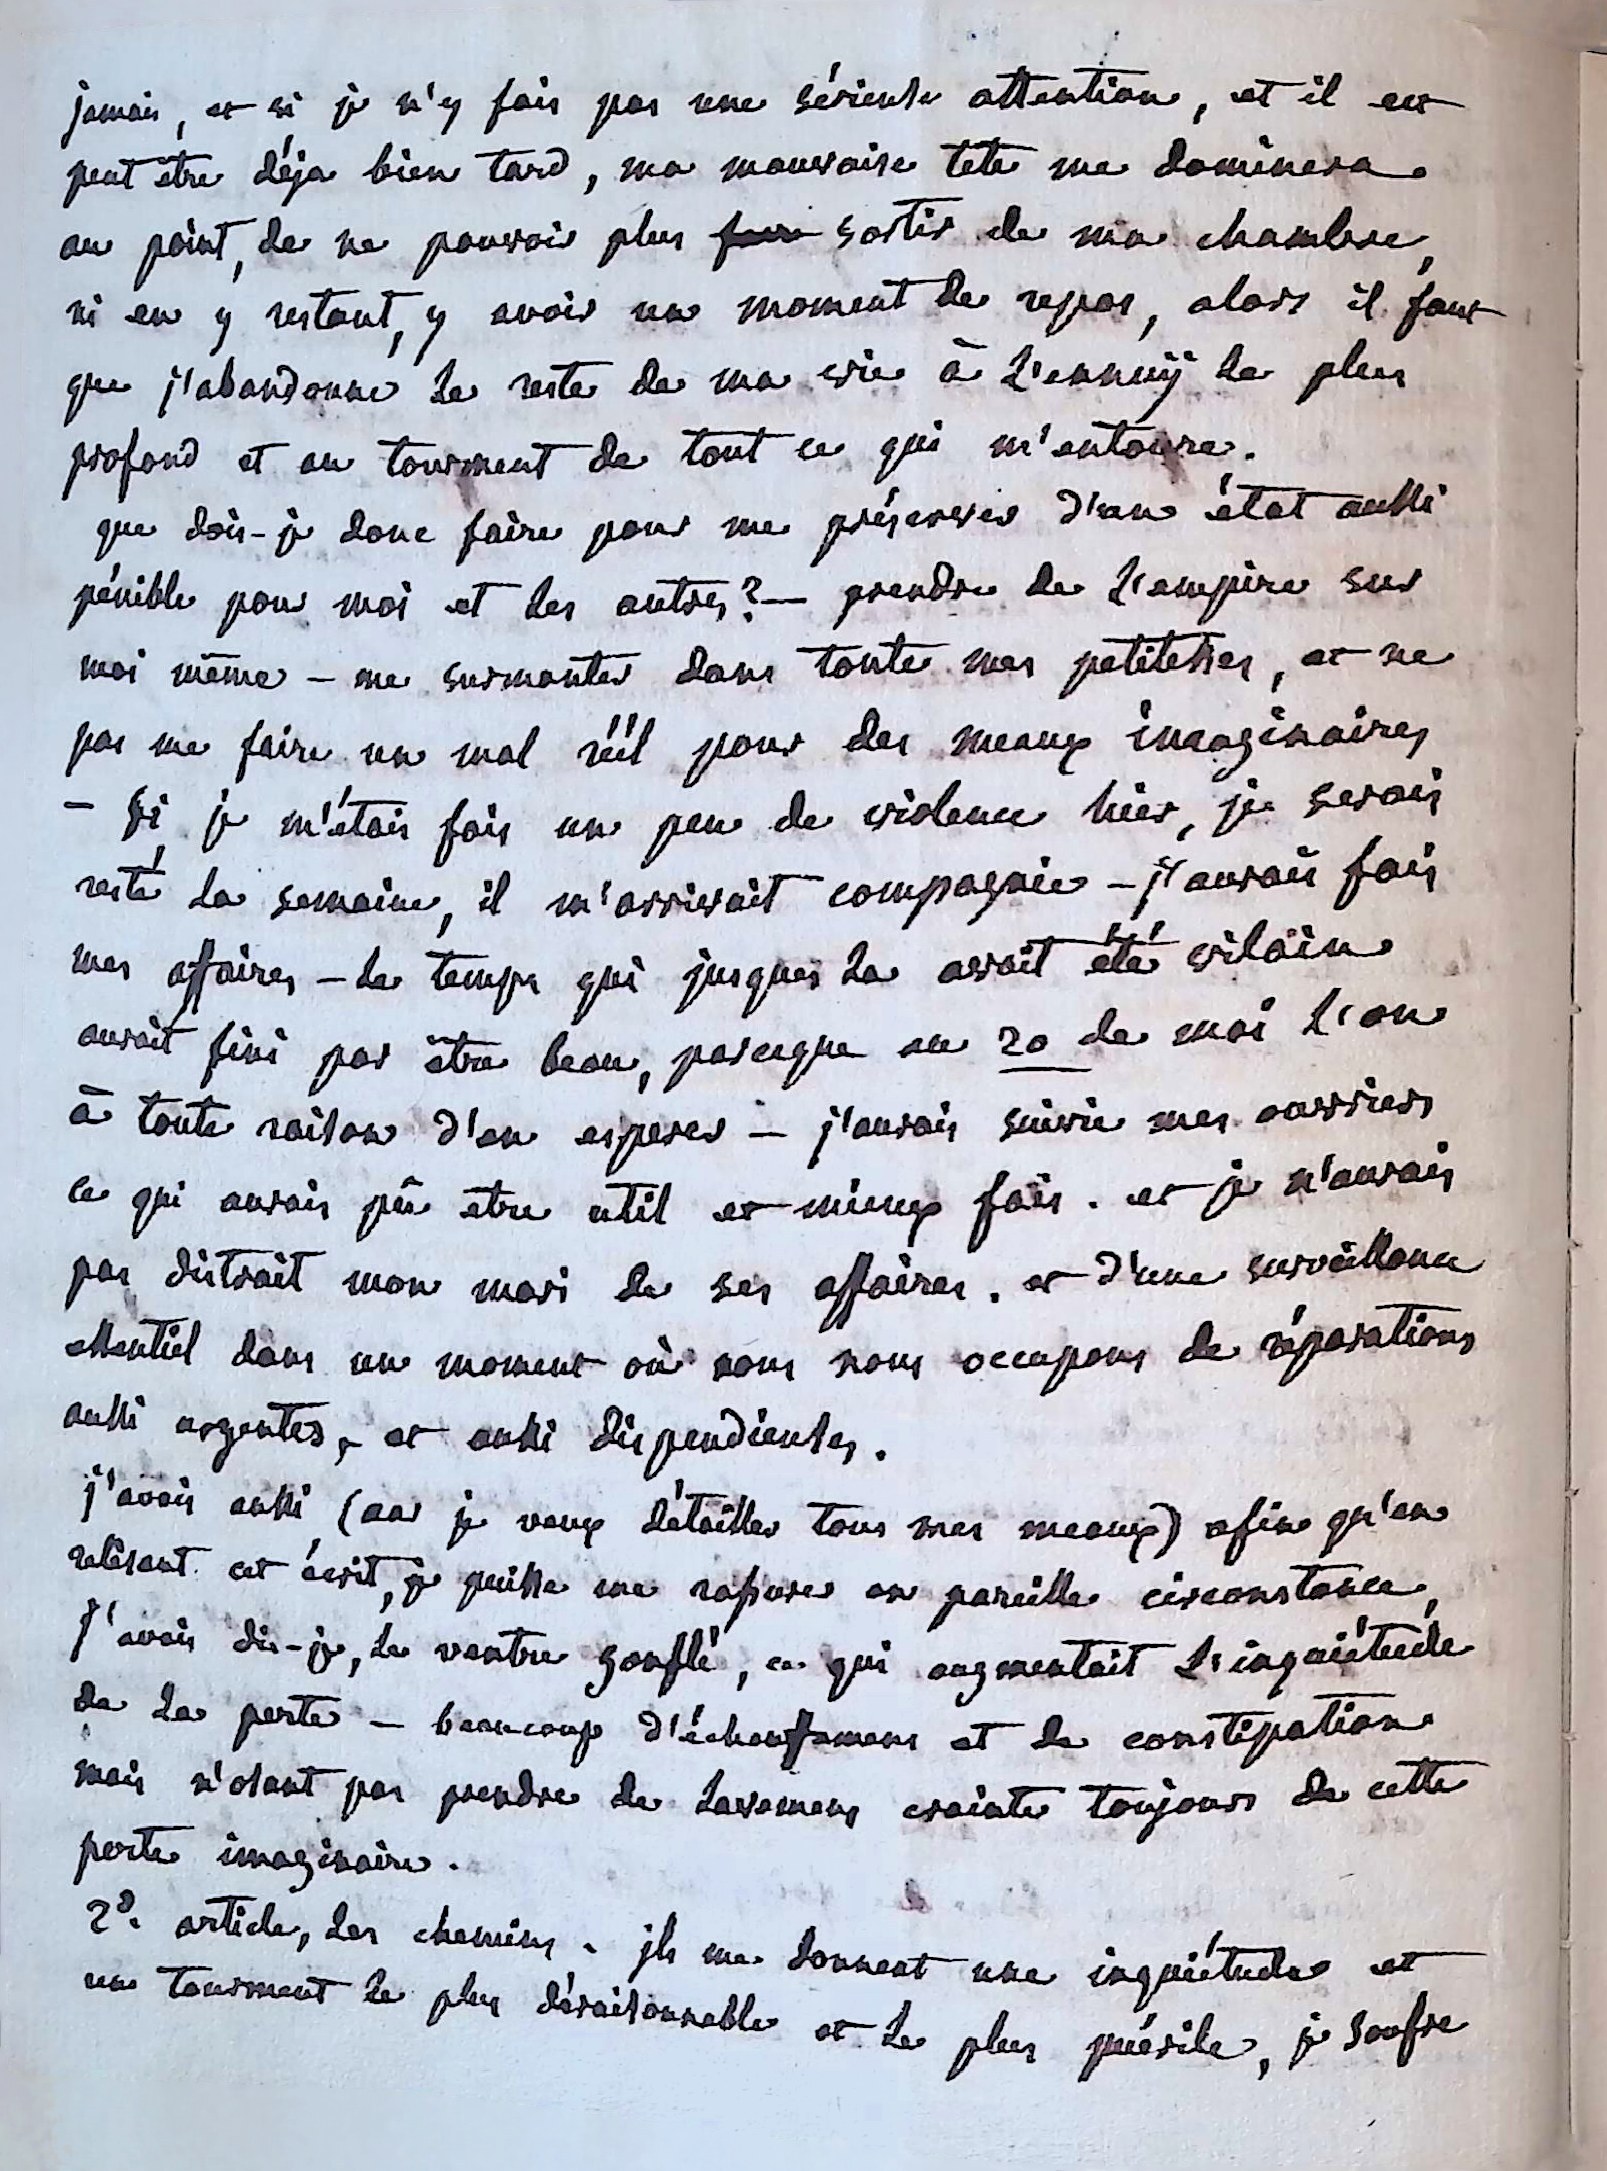 jamais, et si je n'y fais pas une sérieuse attention, et il est
peut être déja bien tard, ma mauvaise tete me dominera
au point, de ne pouvoir plus sortir de ma chambre,
ni en y restant, y avoir un moment de repos, alors il faut
que j'abandonne le reste de ma vie à l'ennuÿ le plus
profond et au tourment de tout ce qui m'entoure.
que dois-je donc faire pour me préserver d'un état aussi
pénible pour moi et les autres? — prendre de l'empire sur
moi même - me surmonter dans toute mes petitesses, et ne
pas me faire un mal réél pour des meaux imaginaires
- Si, je m'étais fais un peu de violence hier, je serais
resté la semaine, il m'arrivait compagnie - j'aurais fais
mes affaires - le temps qui jusques la avait été vilain
aurait fini par être beau, parceque au 20 de mai l'on
à toute raison d'en esperer - j'aurais suivie mes ouvriers
ce qui aurais pû etre util et mieux fais. et je n'aurais
pas distrait mon mari de ses affaires. et d'une surveillance
essentiel dans un moment où nous nous occupons de réparations
aussi urgentes, et aussi dispendieuses.
j'avais aussi (car je veux détailler tous mes meaux) afin qu'en
relisant cet écrit, je puisse me rassurer en pareille circonstance,
J'avais dis-je, le ventre gonflé, ce qui augmentait l'inquiétude
de la perte - beaucoup d'échauffemens et de constipation
mais n'osant pas prendre de lavemens crainte toujours de cette
perte imaginaire.
2d. article, les chemins. jls me donnent une inquiétude et
un tourment le plus déraisonnable et le plus puérile, je soufre